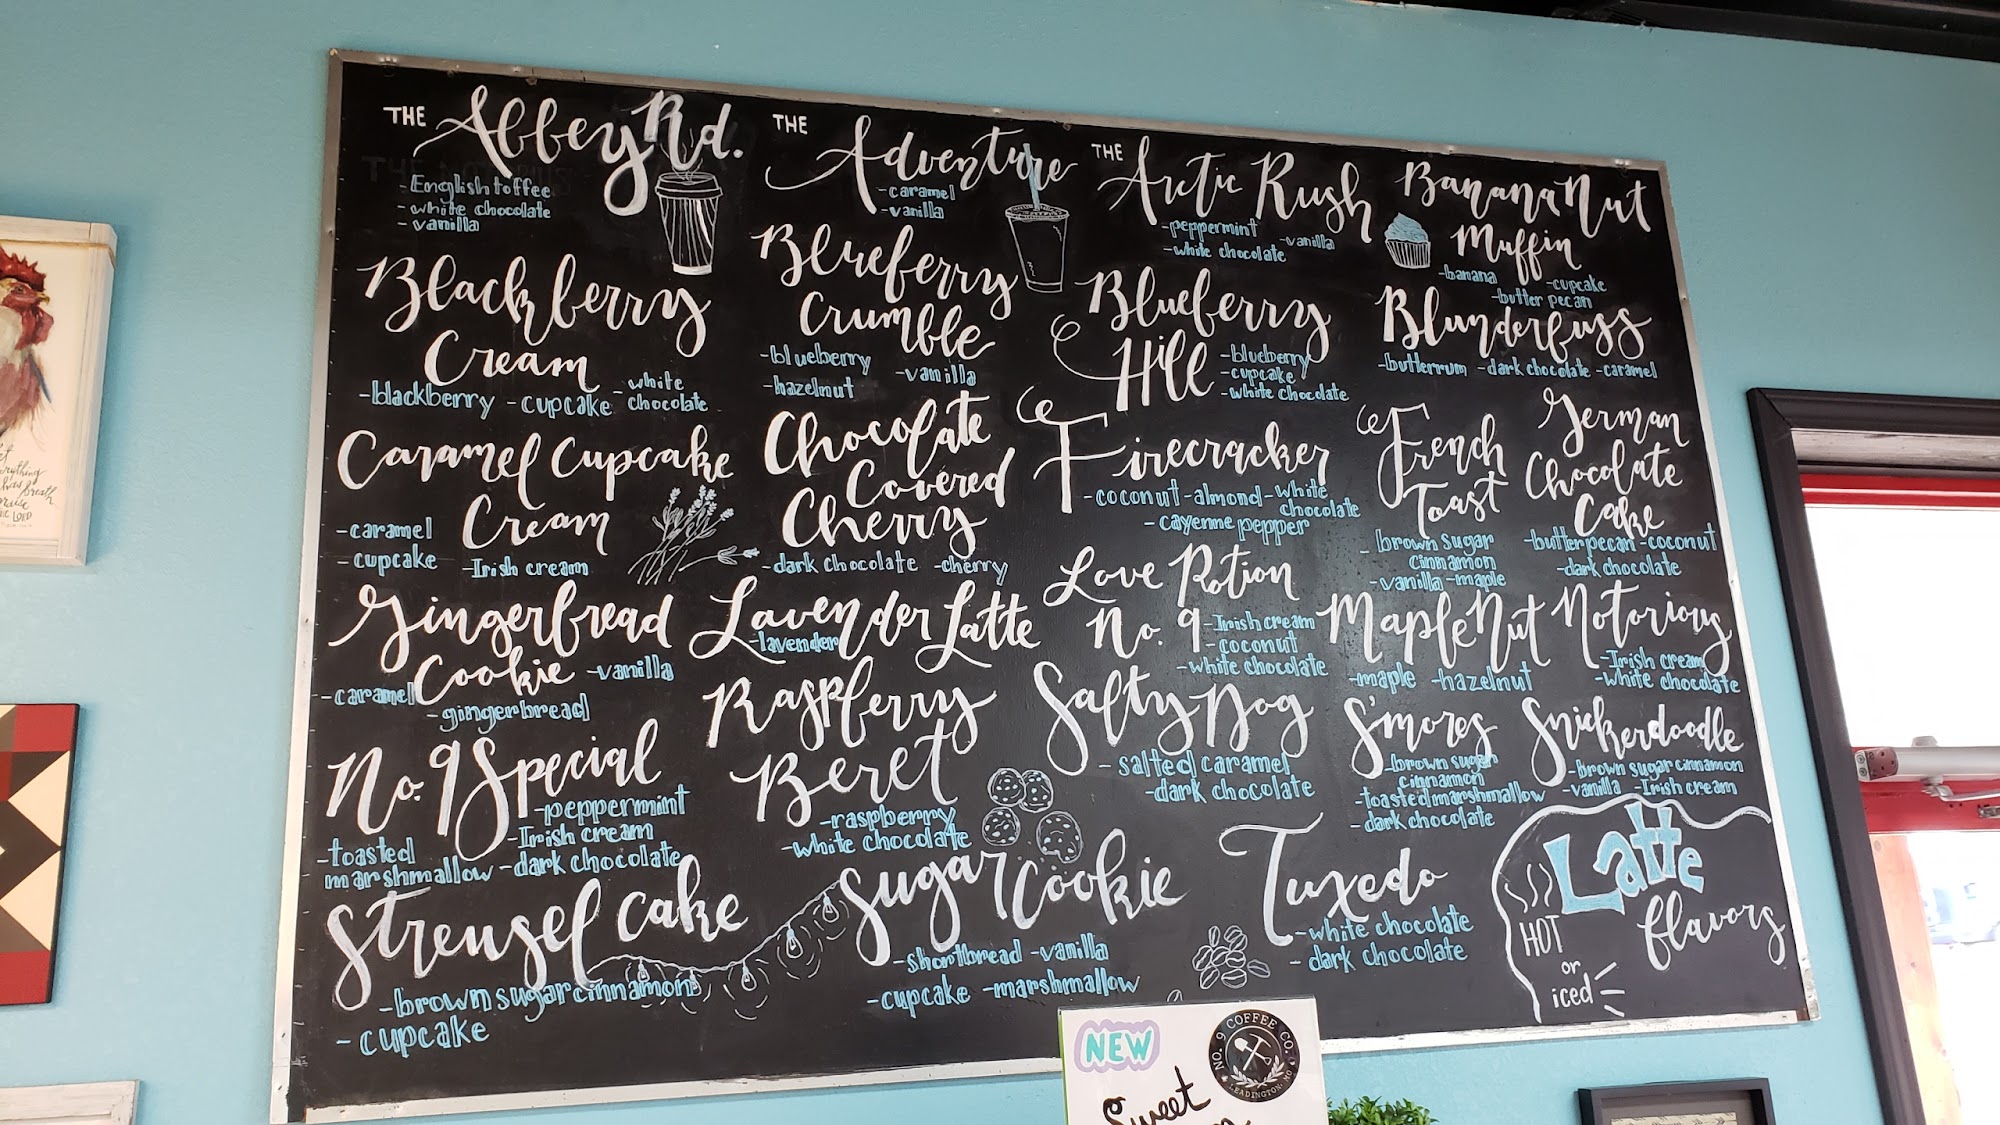 THE Abbey Rd.
- English toffee
- white chocolate
- vanilla
THE Adventure
- caramel
- vanilla
THE Arctic Rush
- peppermint - vanilla
- white chocolate
Banana Nut
Muffin
- banana - cupcake
- butter pecan
Blackberry
Cream
- blackberry - cupcake - white chocolate
Blueberry
Crumble
- blueberry - vanilla
- hazelnut
Blueberry
Hill
- blueberry
- cupcake
- white chocolate
Blunderfuss
- butterrum - dark chocolate - caramel
Caramel Cupcake
Cream
- caramel
- cupcake - Irish cream
Chocolate
Covered
Cherry
- dark chocolate - cherry
Firecracker
- coconut - almond - white chocolate
- cayenne pepper
French
Toast
- brown sugar
cinnamon
- vanilla - maple
German
Chocolate
Cake
- butter pecan - coconut
- dark chocolate
Gingerbread
Cookie - vanilla
- caramel
- gingerbread
Lavender Latte
- lavender
Love Potion
No. 9 - Irish cream
- coconut
- white chocolate
Maple Nut
- maple - hazelnut
Notorious
- Irish cream
- white chocolate
No. 9 Special
- peppermint
- Irish cream
- toasted
marshmallow - dark chocolate
Raspberry
Beret
- raspberry
- white chocolate
Salty Dog
- salted caramel
- dark chocolate
S'mores
- brown sugar
cinnamon
- toasted marshmallow
- dark chocolate
Snickerdoodle
- brown sugar cinnamon
- vanilla - Irish cream
Streusel Cake
- brown sugar cinnamon
- cupcake
Sugar Cookie
- shortbread - vanilla
- cupcake - marshmallow
Tuxedo
- white chocolate
- dark chocolate
Latte
flavors
HOT
or
iced
NEW
NO. 9 COFFEE CO.
LEADINGTON, MO
Sweet